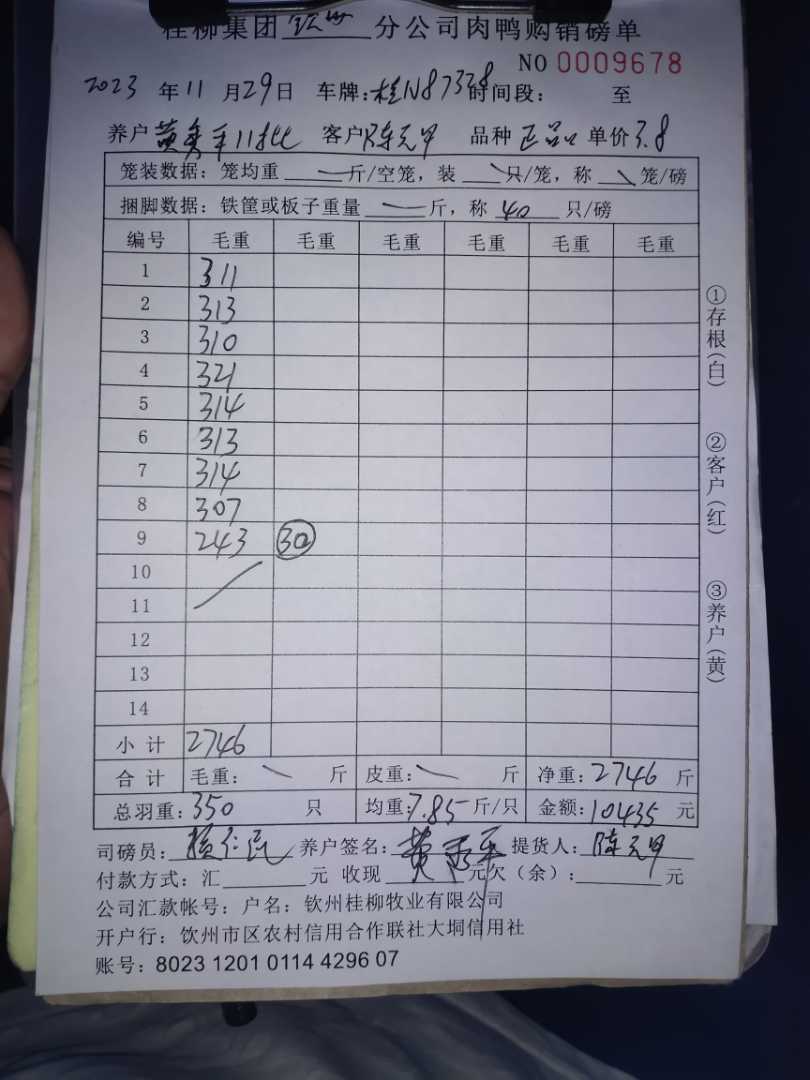 桂柳集团 钦州 分公司肉鸭购销磅单
NO 0009678
2023 年 11 月 29 日 车牌:桂N87328 时间段: 至
养户 黄秀平11批 客户 陈元甲 品种 正品 单价 3.8
笼装数据:笼均重 — 斤/空笼,装 \ 只/笼,称 \ 笼/磅
捆脚数据:铁筐或板子重量 — 斤,称 40 只/磅
编号 毛重 毛重 毛重 毛重 毛重 毛重
1 311
2 313
3 310
4 321
5 314
6 313
7 314
8 307
9 243 30
10
11
12
13
14
小计 2746
合计 毛重: \ 斤 皮重: \ 斤 净重:2746 斤
总羽重:350 只 均重:7.85 斤/只 金额:10435 元
司磅员: 养户签名:黄秀平 提货人:陈元甲
付款方式:汇 元 收现 元欠(余): 元
公司汇款帐号:户名:钦州桂柳牧业有限公司
开户行:饮州市区农村信用合作联社大垌信用社
账号:8023 1201 0114 4296 07
①存根(白)
②客户(红)
③养户(黄)